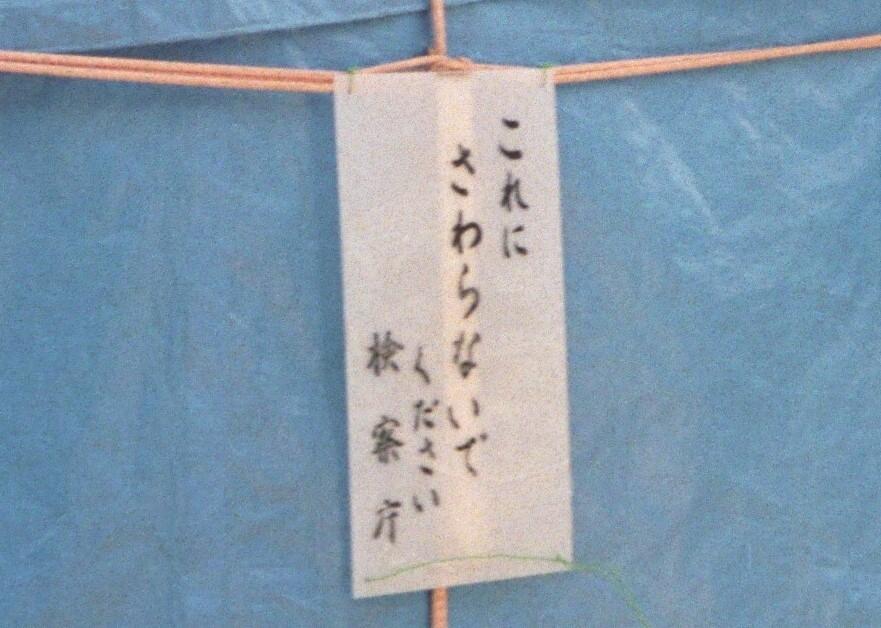 これに
さわらないで
ください
検察庁